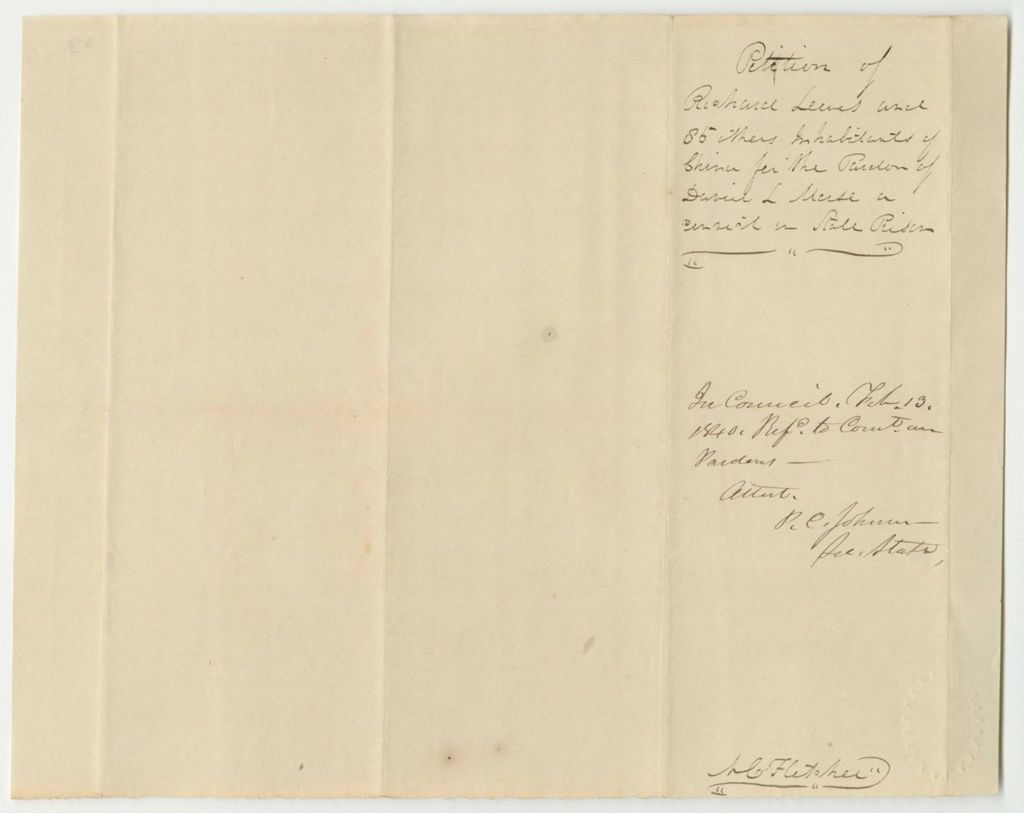 Petition of
Richard Lewis and
85 others Inhabitants of
China for the Pardon of
David L Morse a
convict in State Prison
In Council. Feb. 13.
1840. Refd. to Comtt. on
Pardons —
Attest.
P. C. Johnson
Sec. State,
Fletcher